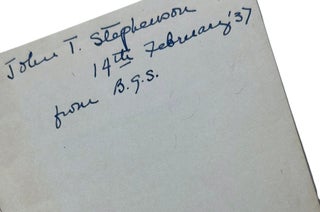 John T. Stephenson
14th February '37
from B.G.S.